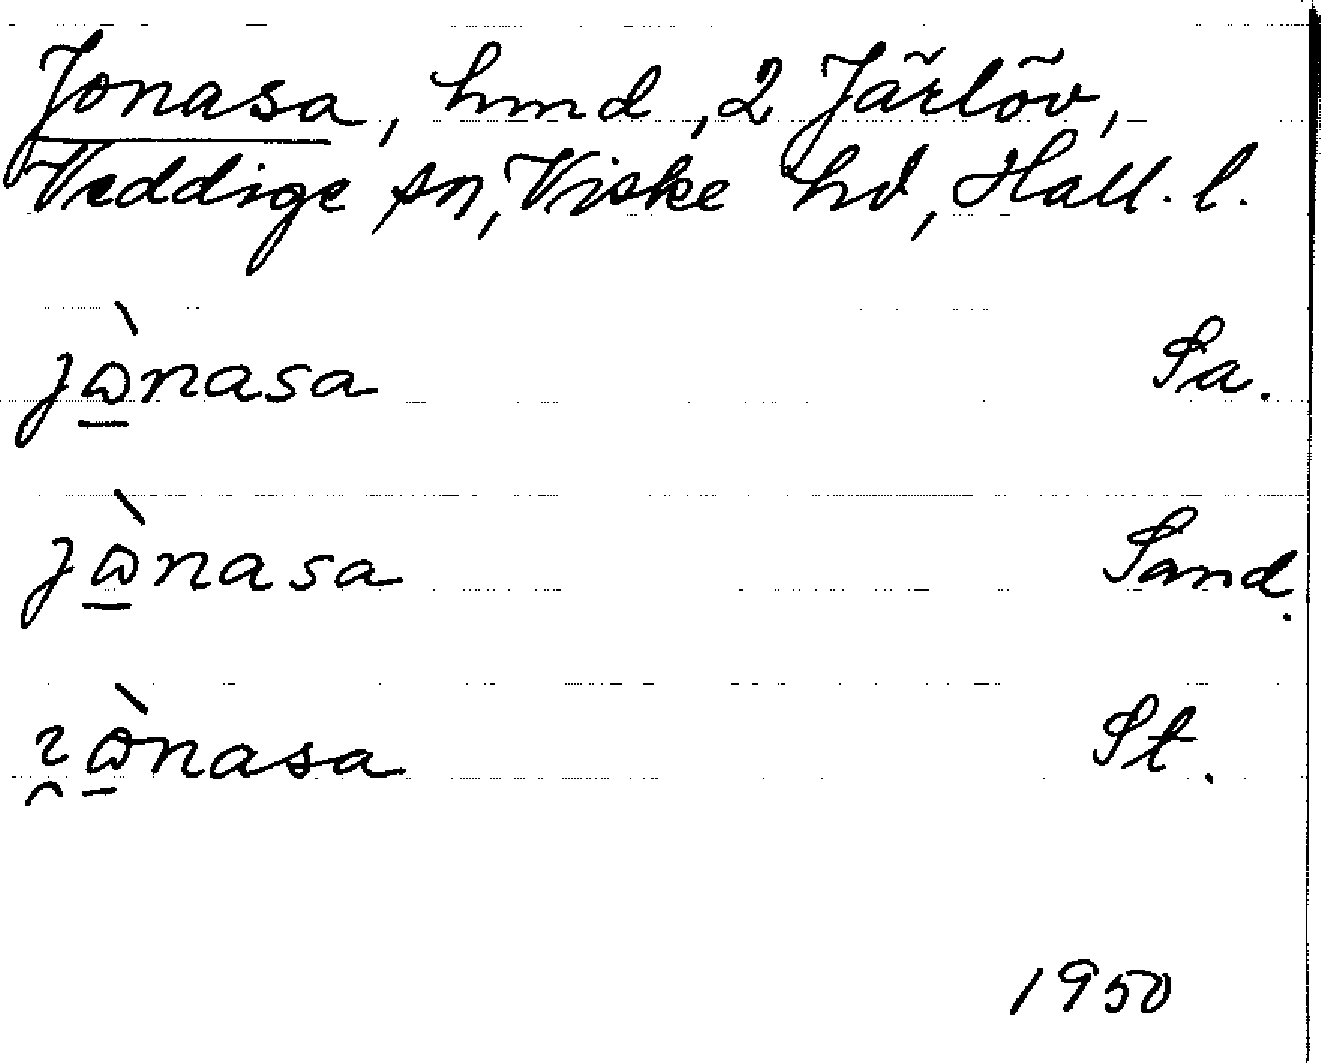 Jonasa, hmd, 2 Järlöv,
Veddige sn, Viske hd, Hall. l.
jɷ̀nasa Sa.
jɷ̀nasa Sand.
ɷ̀nasa St.
1950